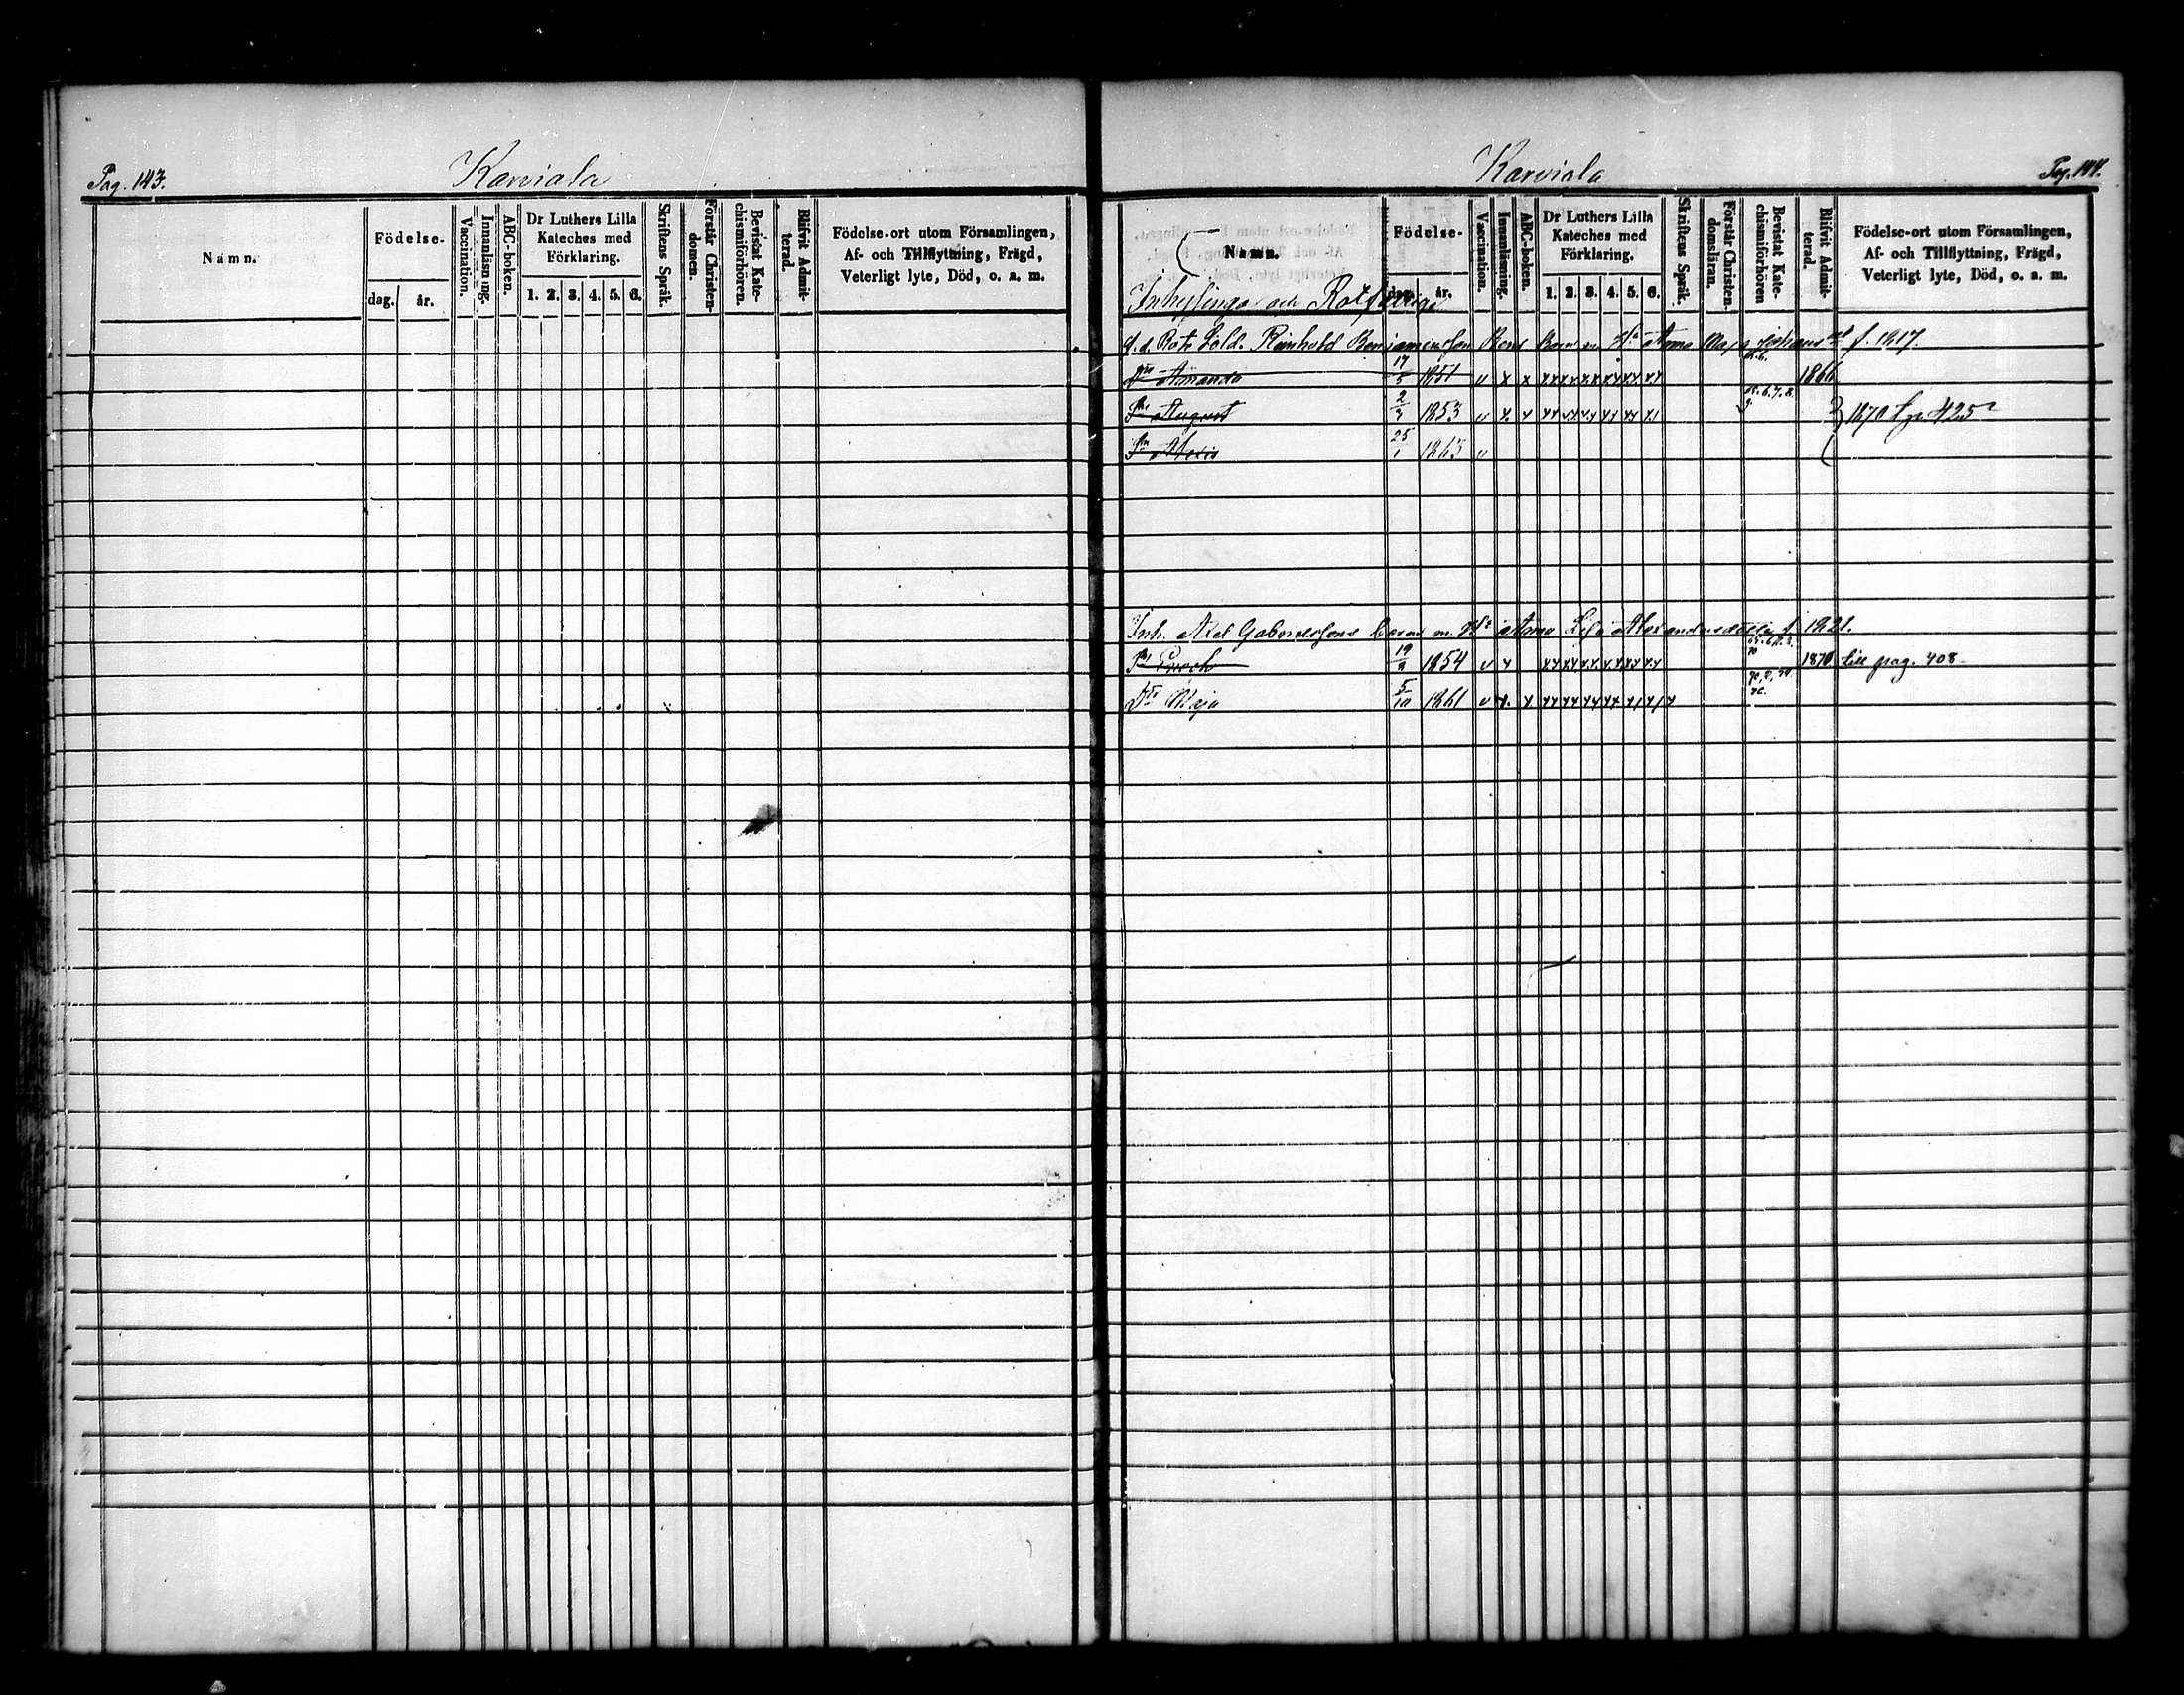 Pag. 143.
Karviala
Namn.
Födelse-
dag.
år.
Vaccination.
Innanläsning.
ABC-boken.
Dr Luthers Lilla
Kateches med
Förklaring.
1. 2. 3. 4. 5. 6.
Skriftens Språk.
Förstår Christen-
domen.
Bevistat Kate-
chismiförhören.
Blifvit Admit-
terad.
Födelse-ort utom Församlingen,
Af- och Tillflyttning, Frägd,
Veterligt lyte, Död, o. a. m.
Karviala
Pag. 144.
Namn.
Födelse-
år.
Vaccination.
Innanläsning.
ABC-boken.
Dr Luthers Lilla
Kateches med
Förklaring.
1. 2. 3. 4. 5. 6.
Skriftens Språk.
Förstår Christen-
domsläran.
Bevistat Kate-
chismiförhören
Blifvit Admit-
terad.
Födelse-ort utom Församlingen,
Af- och Tillflyttning, Frägd,
Veterligt lyte, Död, o. a. m.
Inhysinga och
f.d. Rote Sold. Reinhold Benjaminsson Barn m. Anna Maja f. 1817.
Amanda 17/5 1851 1866
August 1853 1870 425
25/1 1863
Inh. Axel Gabrielssons barn m. Anna Lisa Alexandersdotter f. 1821.
Enoch 1854 1870 till pag. 408
Maja 5/10 1861